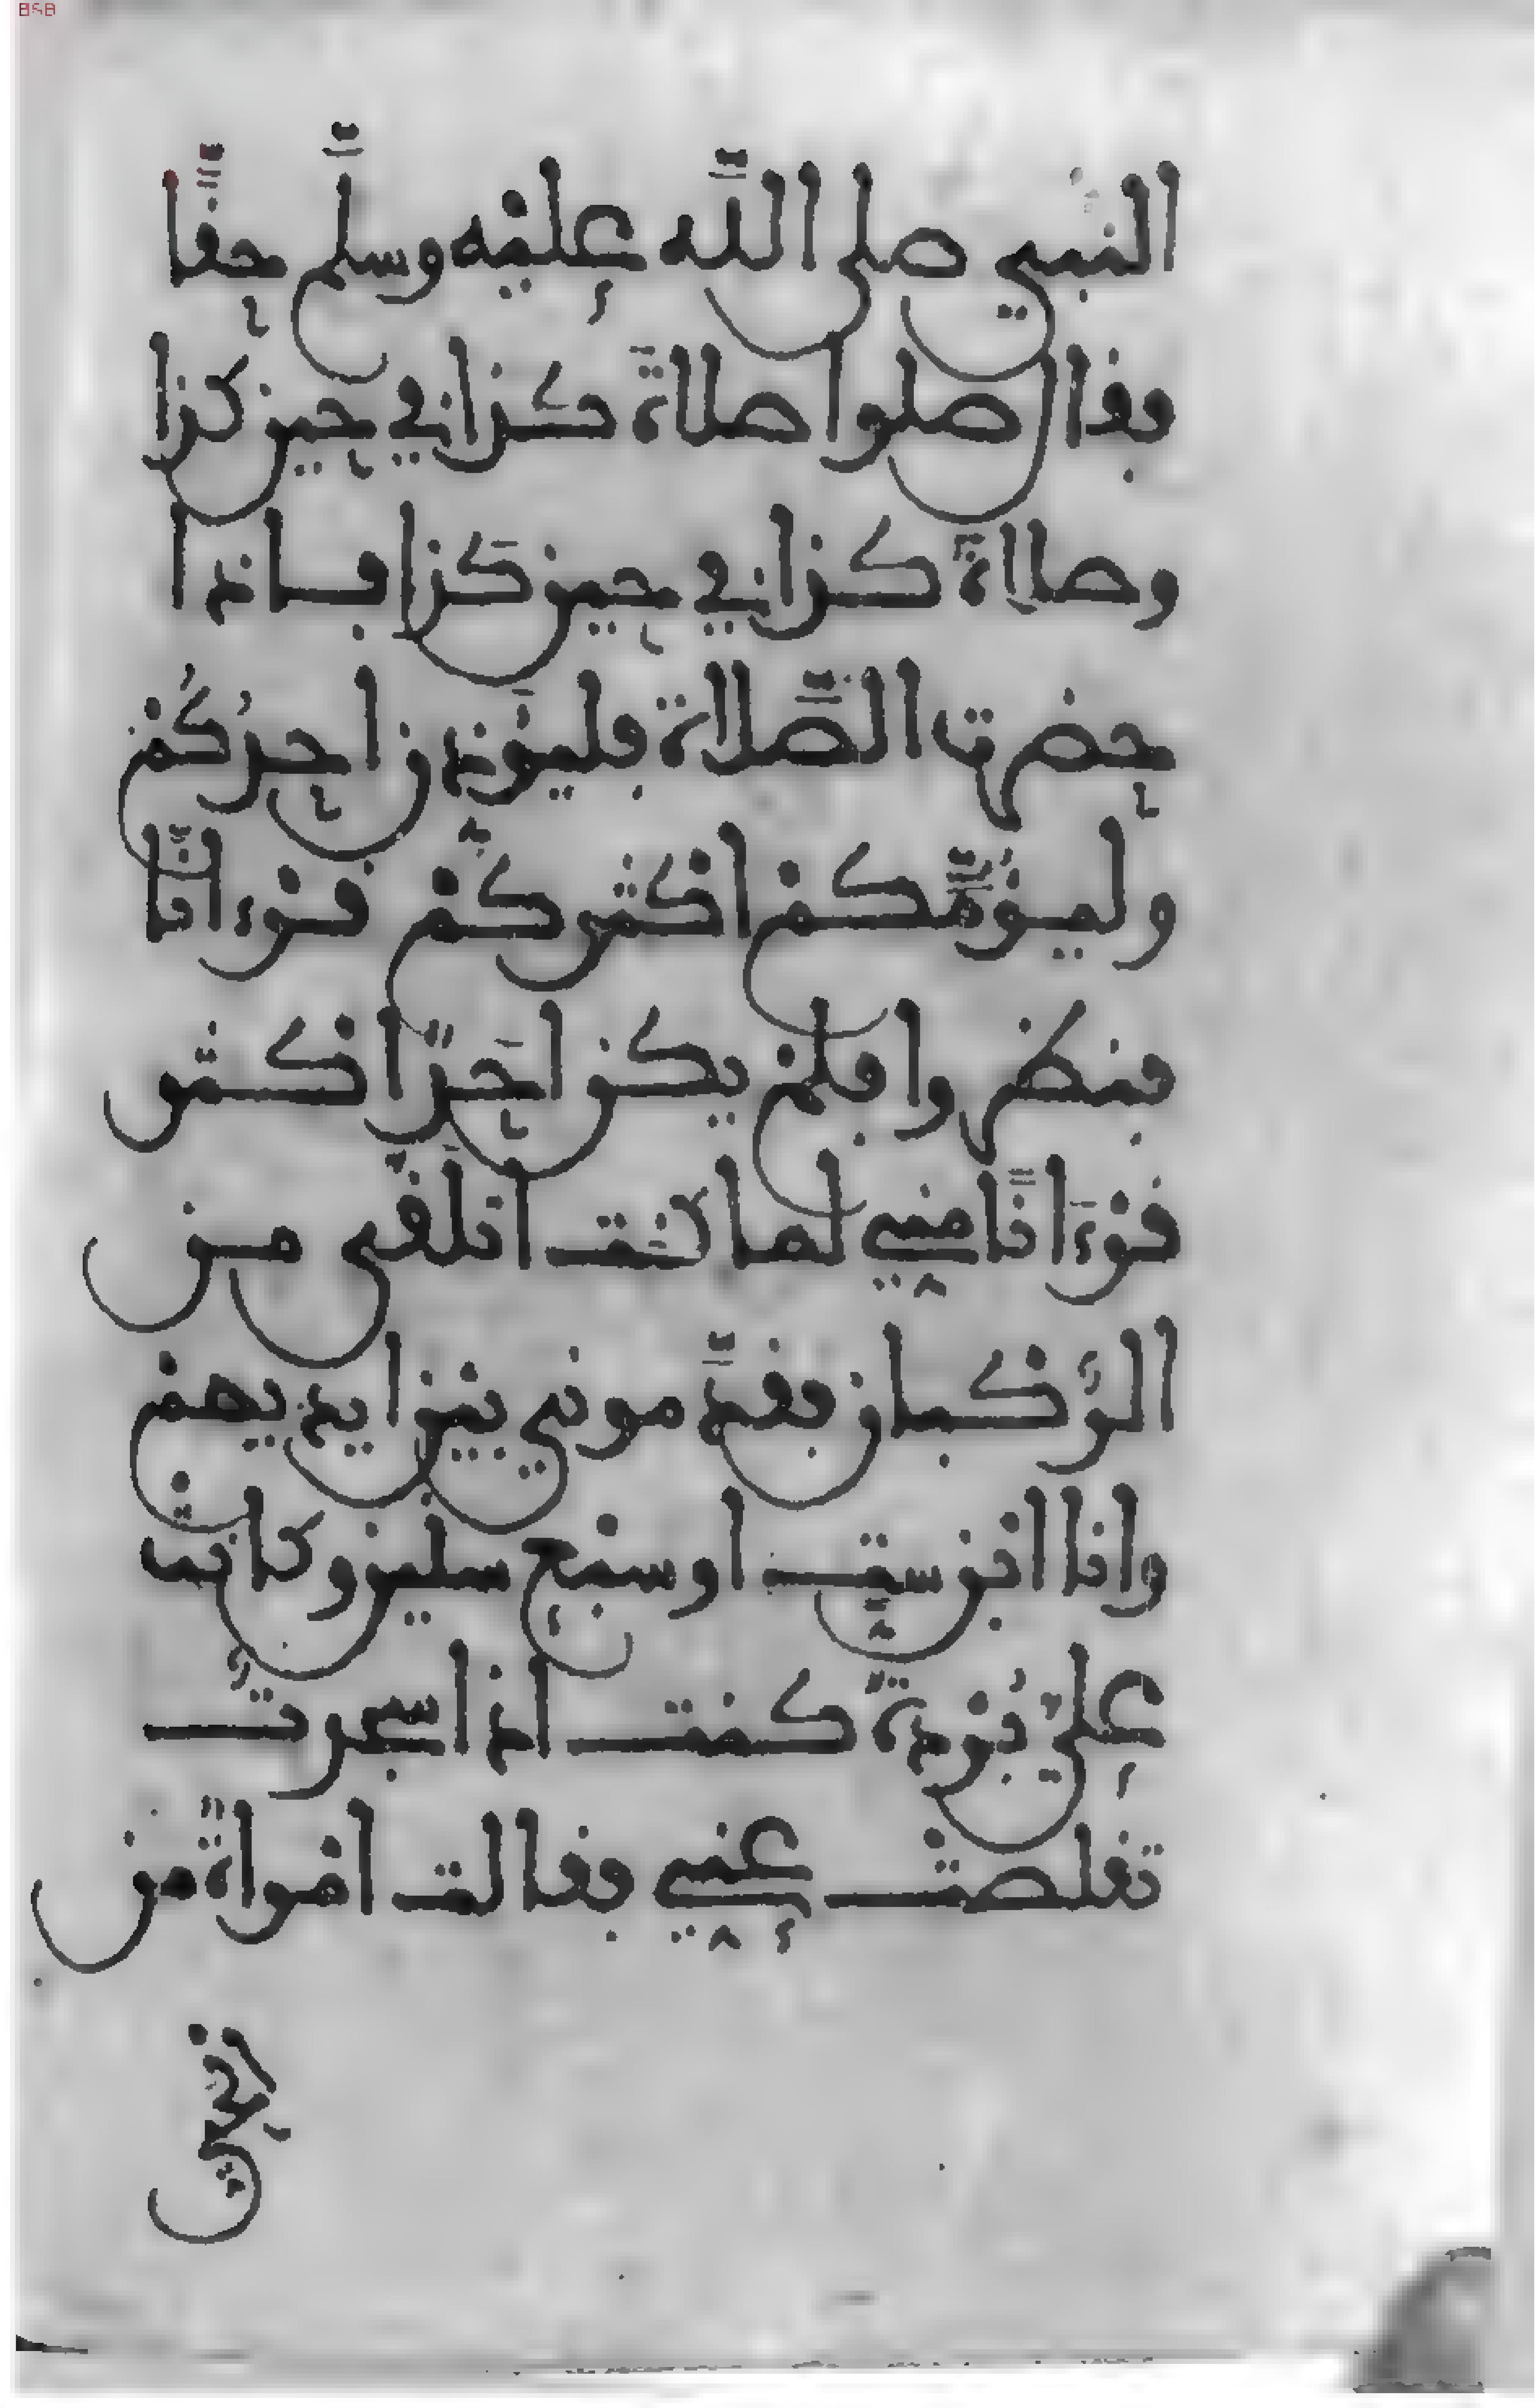 النبي صلى الله عليه وسلم حقا
فقال صلوا صلاة كذا في حين كذا
وصلاة كذا في حين كذا فاذا
حضرت الصلاة فليؤذن احدكم
وليؤمكم اكثركم قرءانا
فنظروا فلم يكن احد اكثر
قرءانا مني لما كنت اتلقى من
الركبان فقدموني بين ايديهم
وانا ابن ست او سبع سنين وكانت
علي بردة كنت اذا سجدت
تقلصت عني فقالت امراة من
الحي
BSB